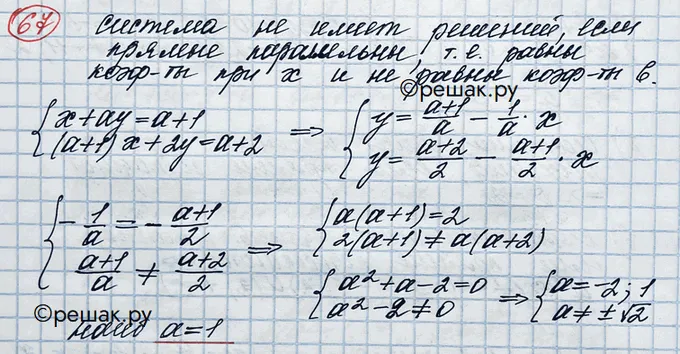 67
система не имеет решений, если
прямые параллельны, т.е. равны
коэф-ты при x и не равны коэф-ты b.
©решак.ру
{ x+ay=a+1 ⇒ { y = (a+1)/a - 1/a · x
{ (a+1)x+2y=a+2 { y = (a+2)/2 - (a+1)/2 · x
{ -1/a = -(a+1)/2 ⇒ { a(a+1)=2
{ (a+1)/a ≠ (a+2)/2 { 2(a+1) ≠ a(a+2)
{ a²+a-2=0 ⇒ { a=-2; 1
{ a²-2≠0 { a≠±√2
©решак.ру
a=1